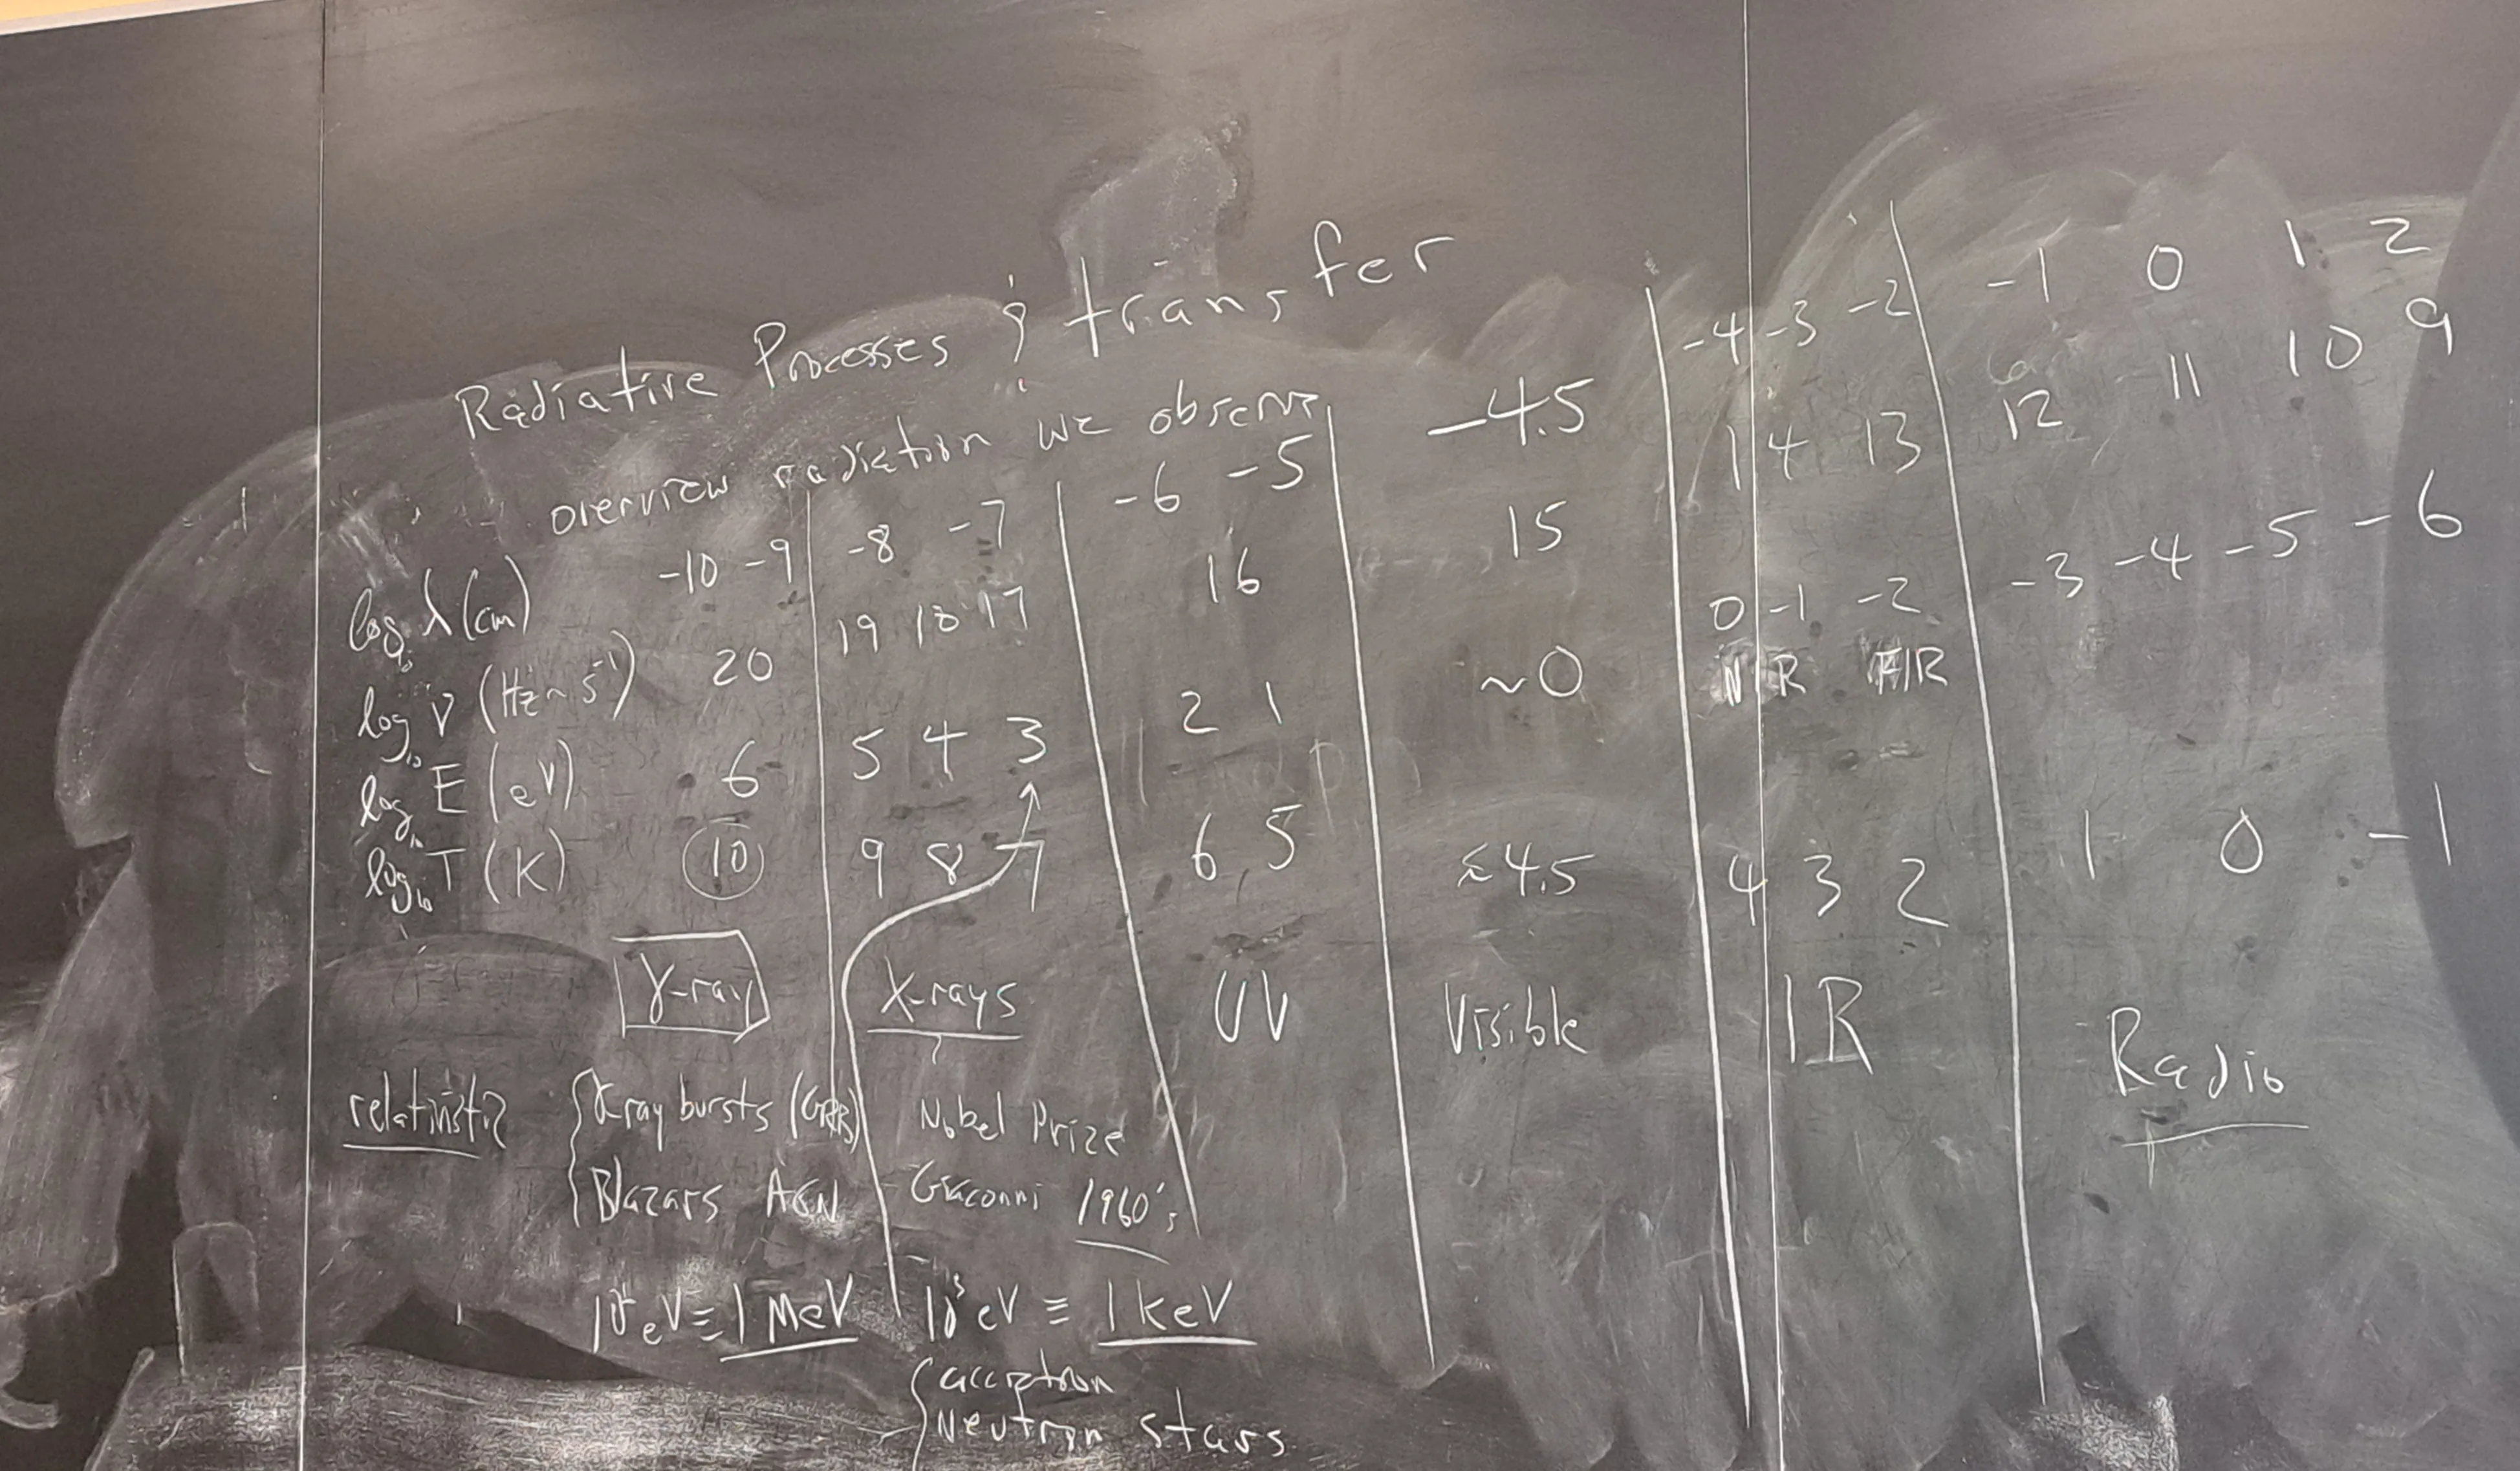 Radiative Processes & transfer
overview radiation we observe
log₁₀ λ (cm) -10 -9 -8 -7 -6 -5 -4.5 -4 -3 -2 -1 0 1 2
log₁₀ ν (Hz ~ s⁻¹) 20 19 18 17 16 15 14 13 12 11 10 9
log₁₀ E (eV) 6 5 4 3 2 1 ~0 0 -1 -2 -3 -4 -5 -6
NIR FIR
log₁₀ T (K) 10 9 8 7 6 5 ≈4.5 4 3 2 1 0 -1
γ-ray X-rays UV Visible IR Radio
relativistic γ ray bursts (GRB) Nobel Prize
Blazars AGN Giaconni 1960's
10⁶ eV ≡ 1 MeV 10³ eV ≡ 1 keV
accretion
Neutron stars